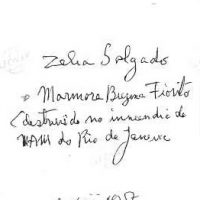 Zelia Salgado
Marmore Buzma Fiorito
(destruido no incendio do
MAM do Rio de Janeiro